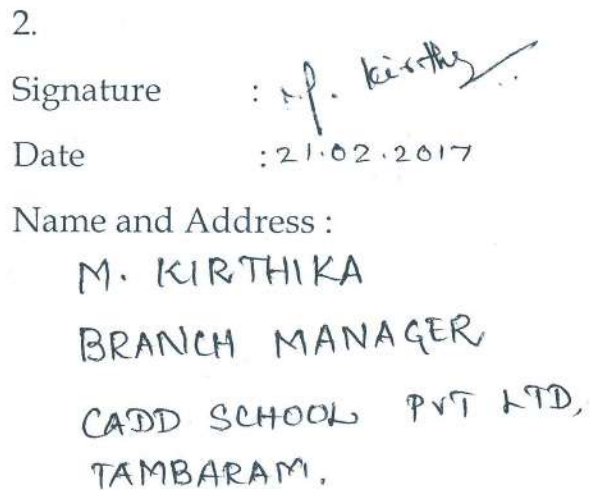 2.
Signature : M. Kirthy
Date : 21.02.2017
Name and Address :
M. KIRTHIKA
BRANCH MANAGER
CADD SCHOOL PVT LTD,
TAMBARAM.